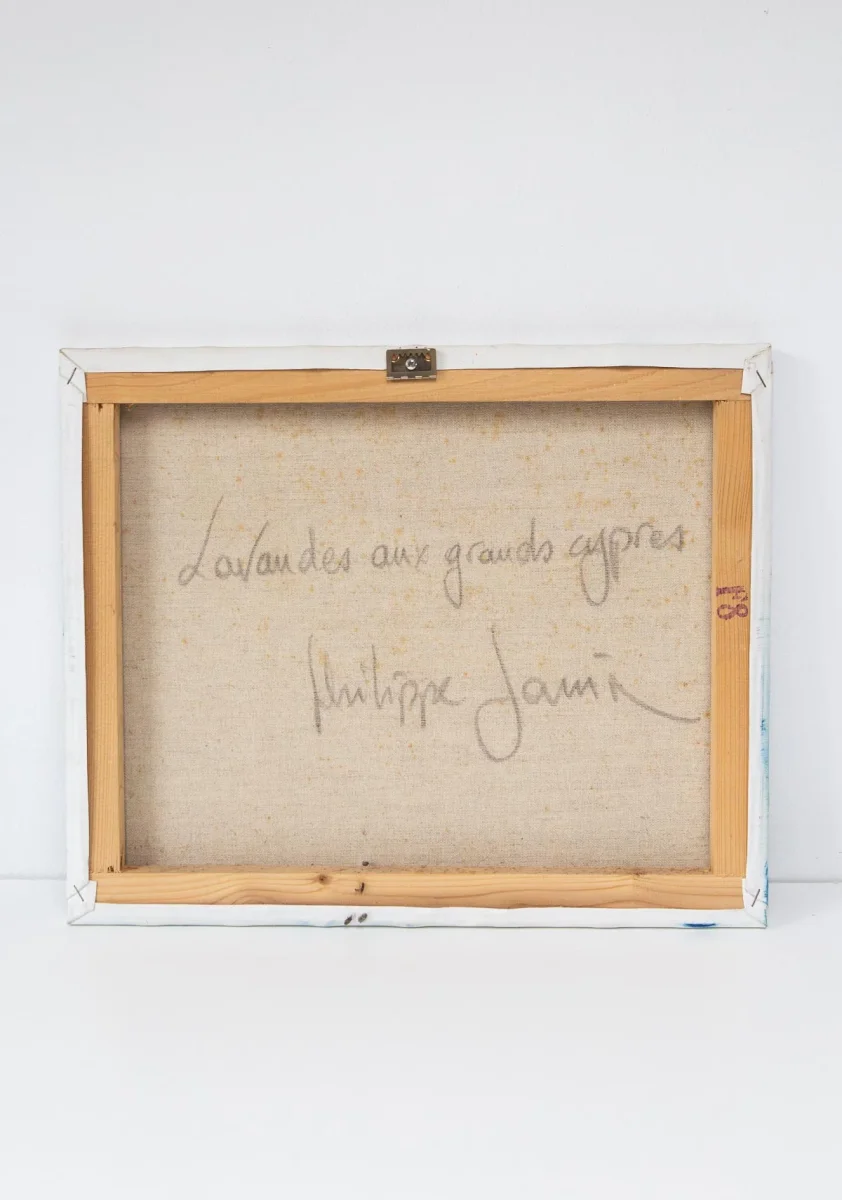 Lavandes aux grands cypres
Philippe Janin
8F